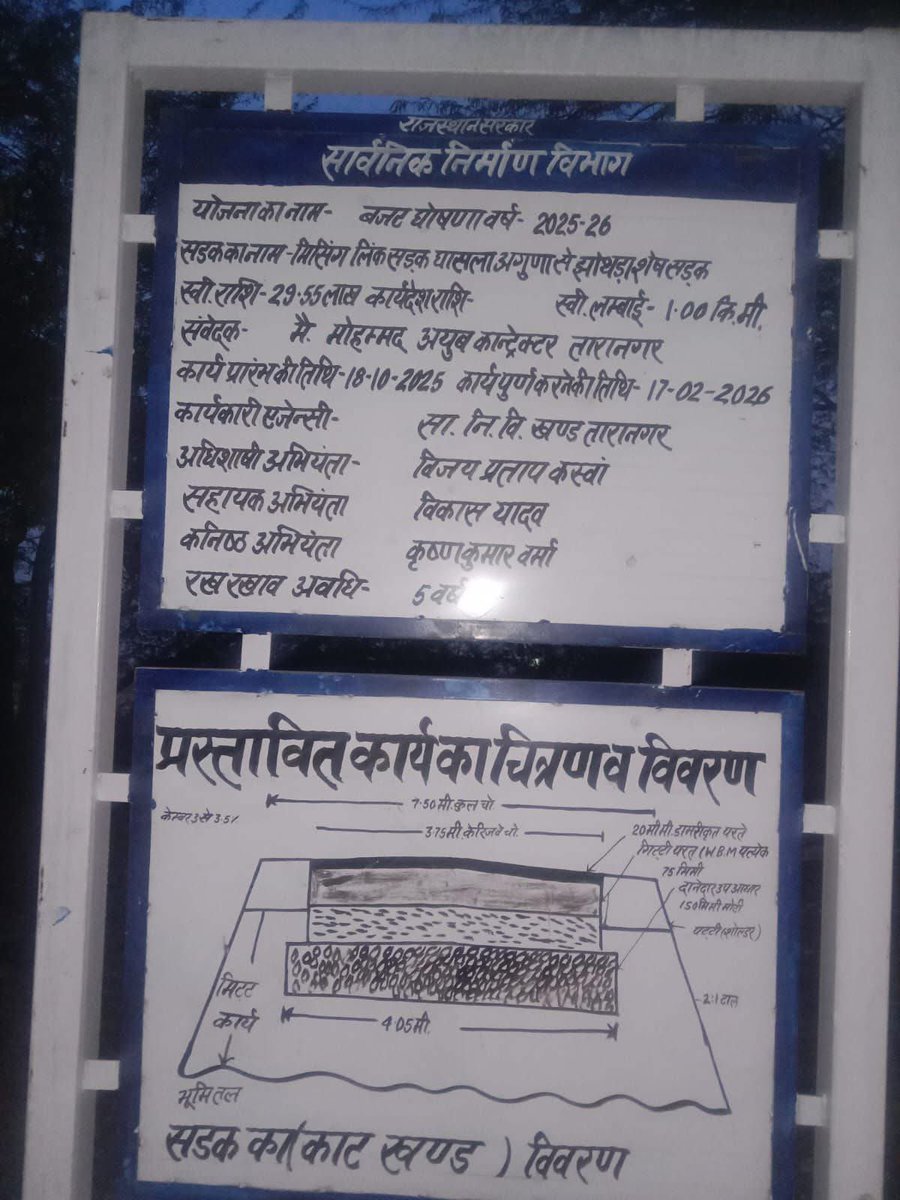 राजस्थान सरकार
सार्वनिक निर्माण विभाग
योजना का नाम- बजट घोषणा वर्ष- 2025-26
सडक का नाम-मिसिंग लिंक सड़क घासला अगुणा से झोथड़ा शेष सड़क
स्वी. राशि-29.55 लाख कार्यदेश राशि- स्वी. लम्बाई- 1.00 कि.मी.
संवेदक- मै. मोहम्मद अयुब कान्ट्रेक्टर तारानगर
कार्य प्रारंभ की तिथि-18-10-2025 कार्य पुर्ण करने की तिथि- 17-02-2026
कार्यकारी एजेन्सी- सा. नि. वि. खण्ड तारानगर
अधिशाषी अभियंता- विजय प्रताप कस्वां
सहायक अभियंता विकास यादव
कनिष्ठ अभियंता कृष्ण कुमार वर्मा
रख रखाव अवधि- 5 वर्ष
प्रस्तावित कार्य का चित्रण व विवरण
7.50 मी. कुल चौ
केम्बर 3 से 3.5%
3.75 मी केरिजवे चो.
20 मी मी डामरीकृत परते
गिट्टी परत (W.B.M प्रत्येक
75 मिमी
दानेदार उप आधार
150 मि मी मोटी
पट्टी (शोल्डर)
मिटट
कार्य
2:1 ढाल
4.05 मी.
भूमि तल
सडक का (काट खण्ड ) विवरण